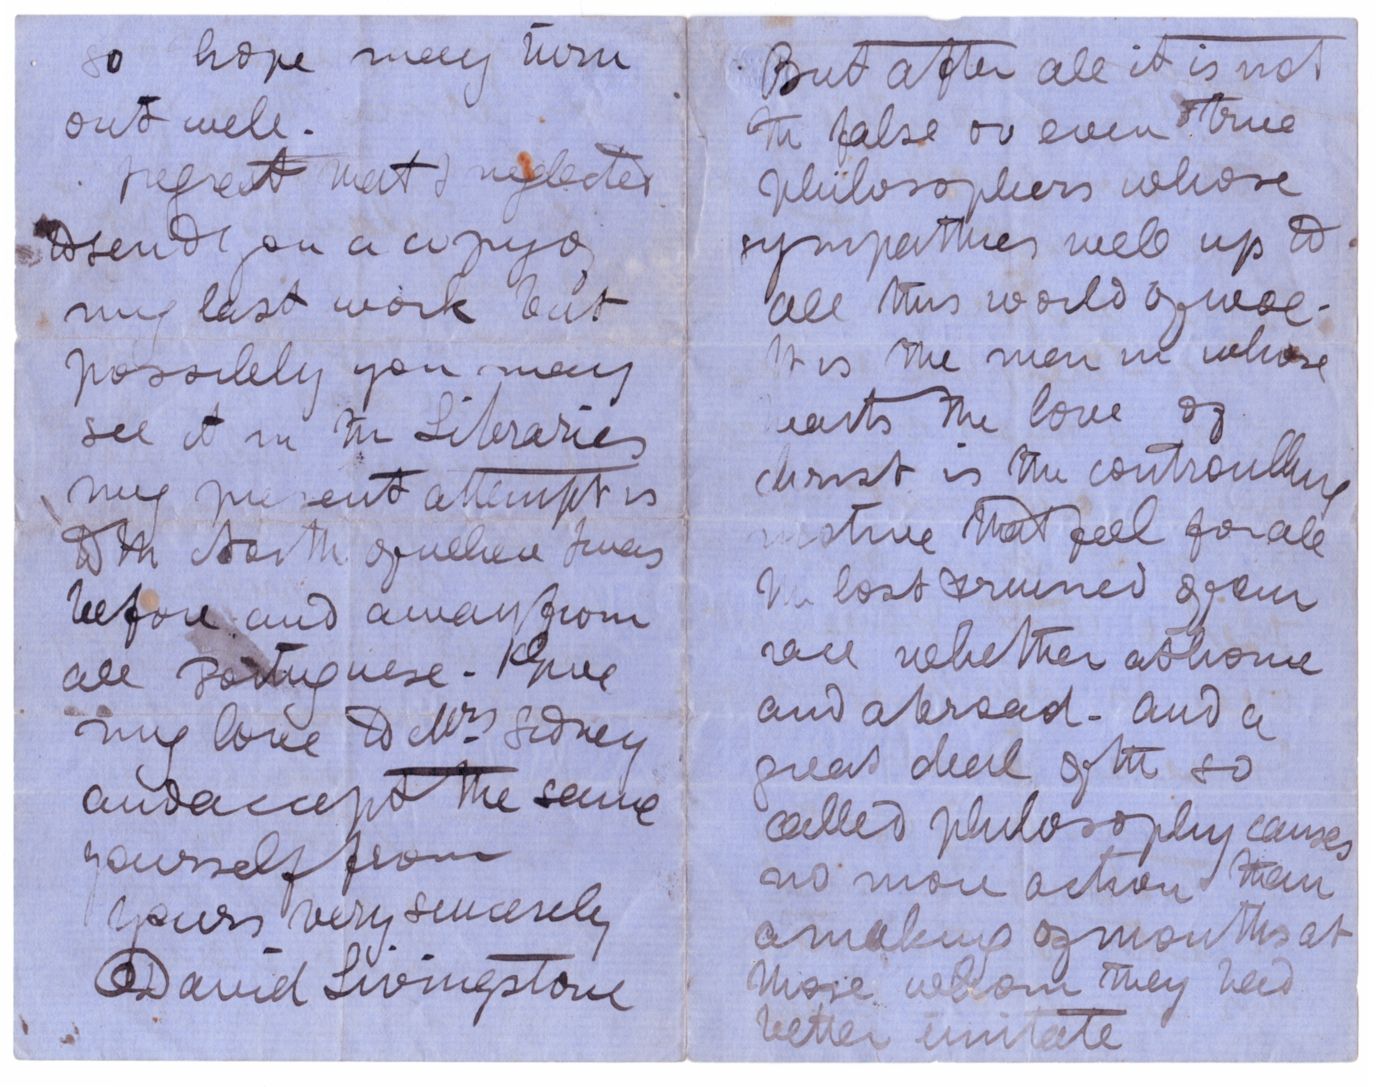 so hope may turn
out well.
regret that I neglected
to send you a copy of
my last work but
possibly you may
see it in the Libraries
my present attempt is
to the North of where I was
before and away from
all Portuguese - Give
my love to Mrs Sidney
and accept the same
yourself from
yours very sincerely
David Livingstone
But after all it is not
the false or even true
philosophers whose
sympathies well up to
all this world of woe -
It is the men in whose
hearts the love of
Christ is the controulling
motive that feel for all
the lost & ruined of our
race whether at home
and abroad - and a
great deal of the so
called philosophy causes
no more action than
a making of mouths at
those whom they had
better imitate